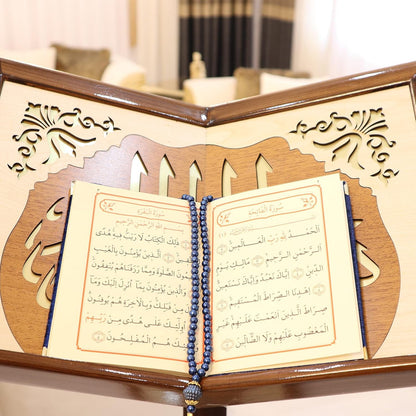 سُورَةُ الفَاتِحَةِ
الْحَمْدُ لِلَّهِ رَبِّ الْعَالَمِينَ
الرَّحْمَنِ الرَّحِيمِ مَالِكِ يَوْمِ
الدِّينِ إِيَّاكَ نَعْبُدُ وَإِيَّاكَ نَسْتَعِينُ
اهْدِنَا الصِّرَاطَ الْمُسْتَقِيمَ
صِرَاطَ الَّذِينَ أَنْعَمْتَ عَلَيْهِمْ غَيْرِ
الْمَغْضُوبِ عَلَيْهِمْ وَلَا الضَّالِّينَ
سُورَةُ البَقَرَةِ
بِسْمِ اللَّهِ الرَّحْمَنِ الرَّحِيمِ
ذَلِكَ الْكِتَابُ لَا رَيْبَ فِيهِ هُدًى
الَّذِينَ يُؤْمِنُونَ بِالْغَيْبِ
الصَّلَاةَ وَمِمَّا رَزَقْنَاهُمْ يُنْفِقُونَ
وَالَّذِينَ يُؤْمِنُونَ بِمَا أُنْزِلَ إِلَيْكَ وَمَا
وَبِالْآخِرَةِ هُمْ يُوقِنُونَ
أُولَئِكَ عَلَى هُدًى مِنْ رَبِّهِمْ
هُمُ الْمُفْلِحُونَ